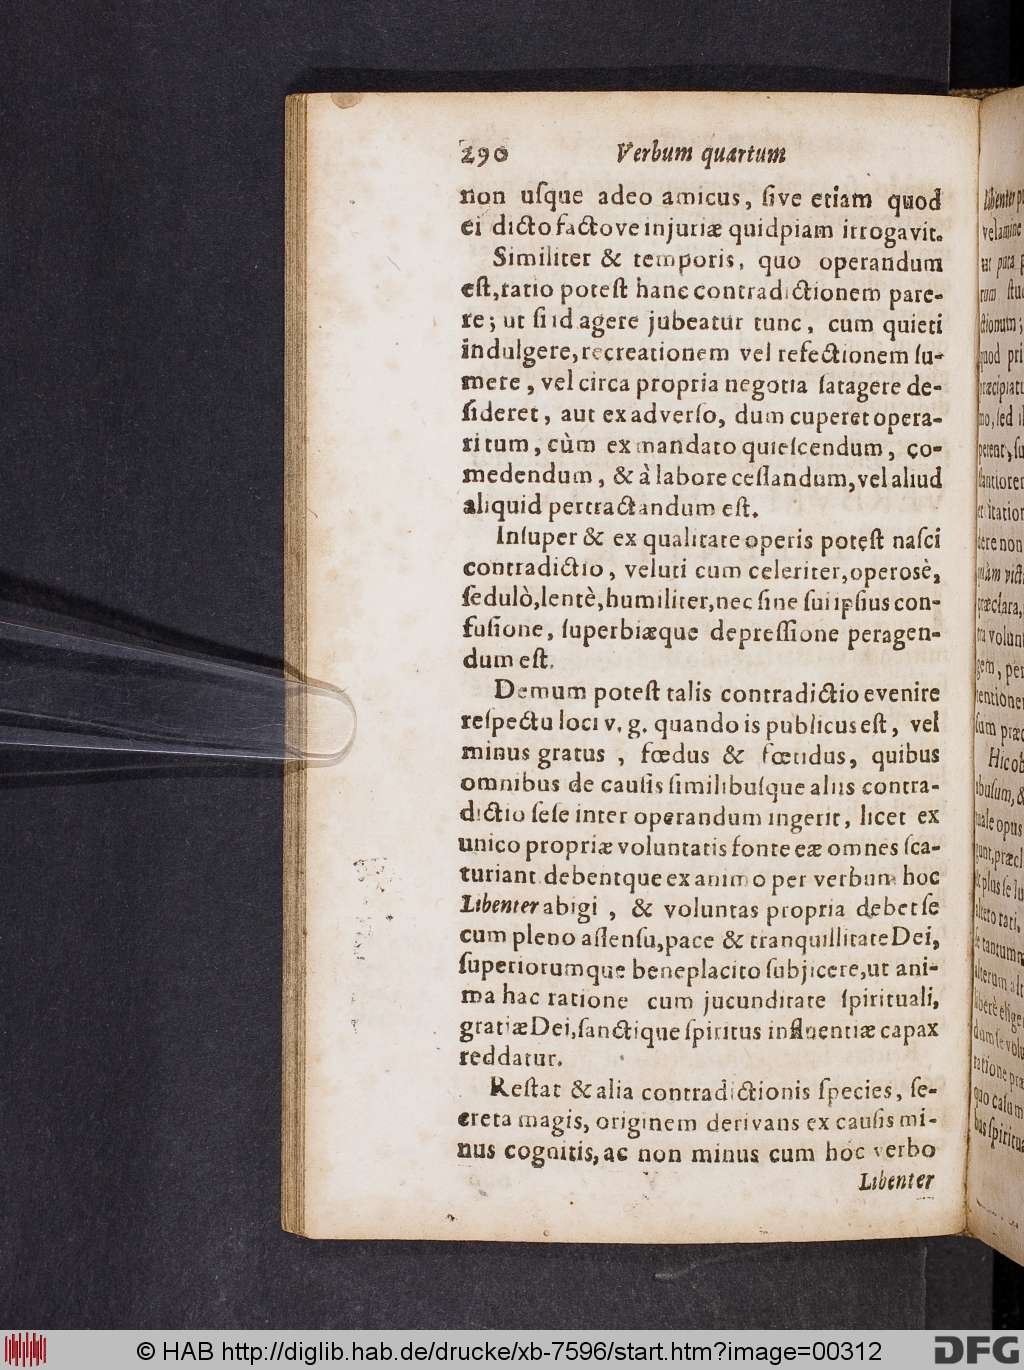 290 Verbum quartum
non uſque adeo amicus, ſive etiam quod
ei dicto factove injuriæ quidpiam irrogavit.
Similiter & temporis, quo operandum
eſt, ratio poteſt hanc contradictionem pare-
re; ut ſi id agere jubeatur tunc, cum quieti
indulgere, recreationem vel refectionem ſu-
mere, vel circa propria negotia ſatagere de-
ſideret, aut ex adverſo, dum cuperet opera-
ri tum, cùm ex mandato quieſcendum, co-
medendum, & à labore ceſſandum, vel aliud
aliquid pertractandum eſt.
Inſuper & ex qualitate operis poteſt naſci
contradictio, veluti cum celeriter, operosè,
ſedulò, lentè, humiliter, nec ſine ſui ipſius con-
fuſione, ſuperbiæque depreſſione peragen-
dum eſt.
Demum poteſt talis contradictio evenire
reſpectu loci v. g. quando is publicus eſt, vel
minus gratus, fœdus & fœtidus, quibus
omnibus de cauſis ſimilibuſque aliis contra-
dictio ſeſe inter operandum ingerit, licet ex
unico propriæ voluntatis fonte eæ omnes ſca-
turiant debentque ex animo per verbum hoc
Libenter abigi, & voluntas propria debet ſe
cum pleno aſſenſu, pace & tranquillitate Dei,
ſuperiorumque beneplacito ſubjicere, ut ani-
ma hac ratione cum jucunditate ſpirituali,
gratiæ Dei, ſanctique ſpiritus influentiæ capax
reddatur.
Reſtat & alia contradictionis ſpecies, ſe-
creta magis, originem derivans ex cauſis mi-
nus cognitis, ac non minus cum hoc verbo
Libenter
© HAB http://diglib.hab.de/drucke/xb-7596/start.htm?image=00312
DFG